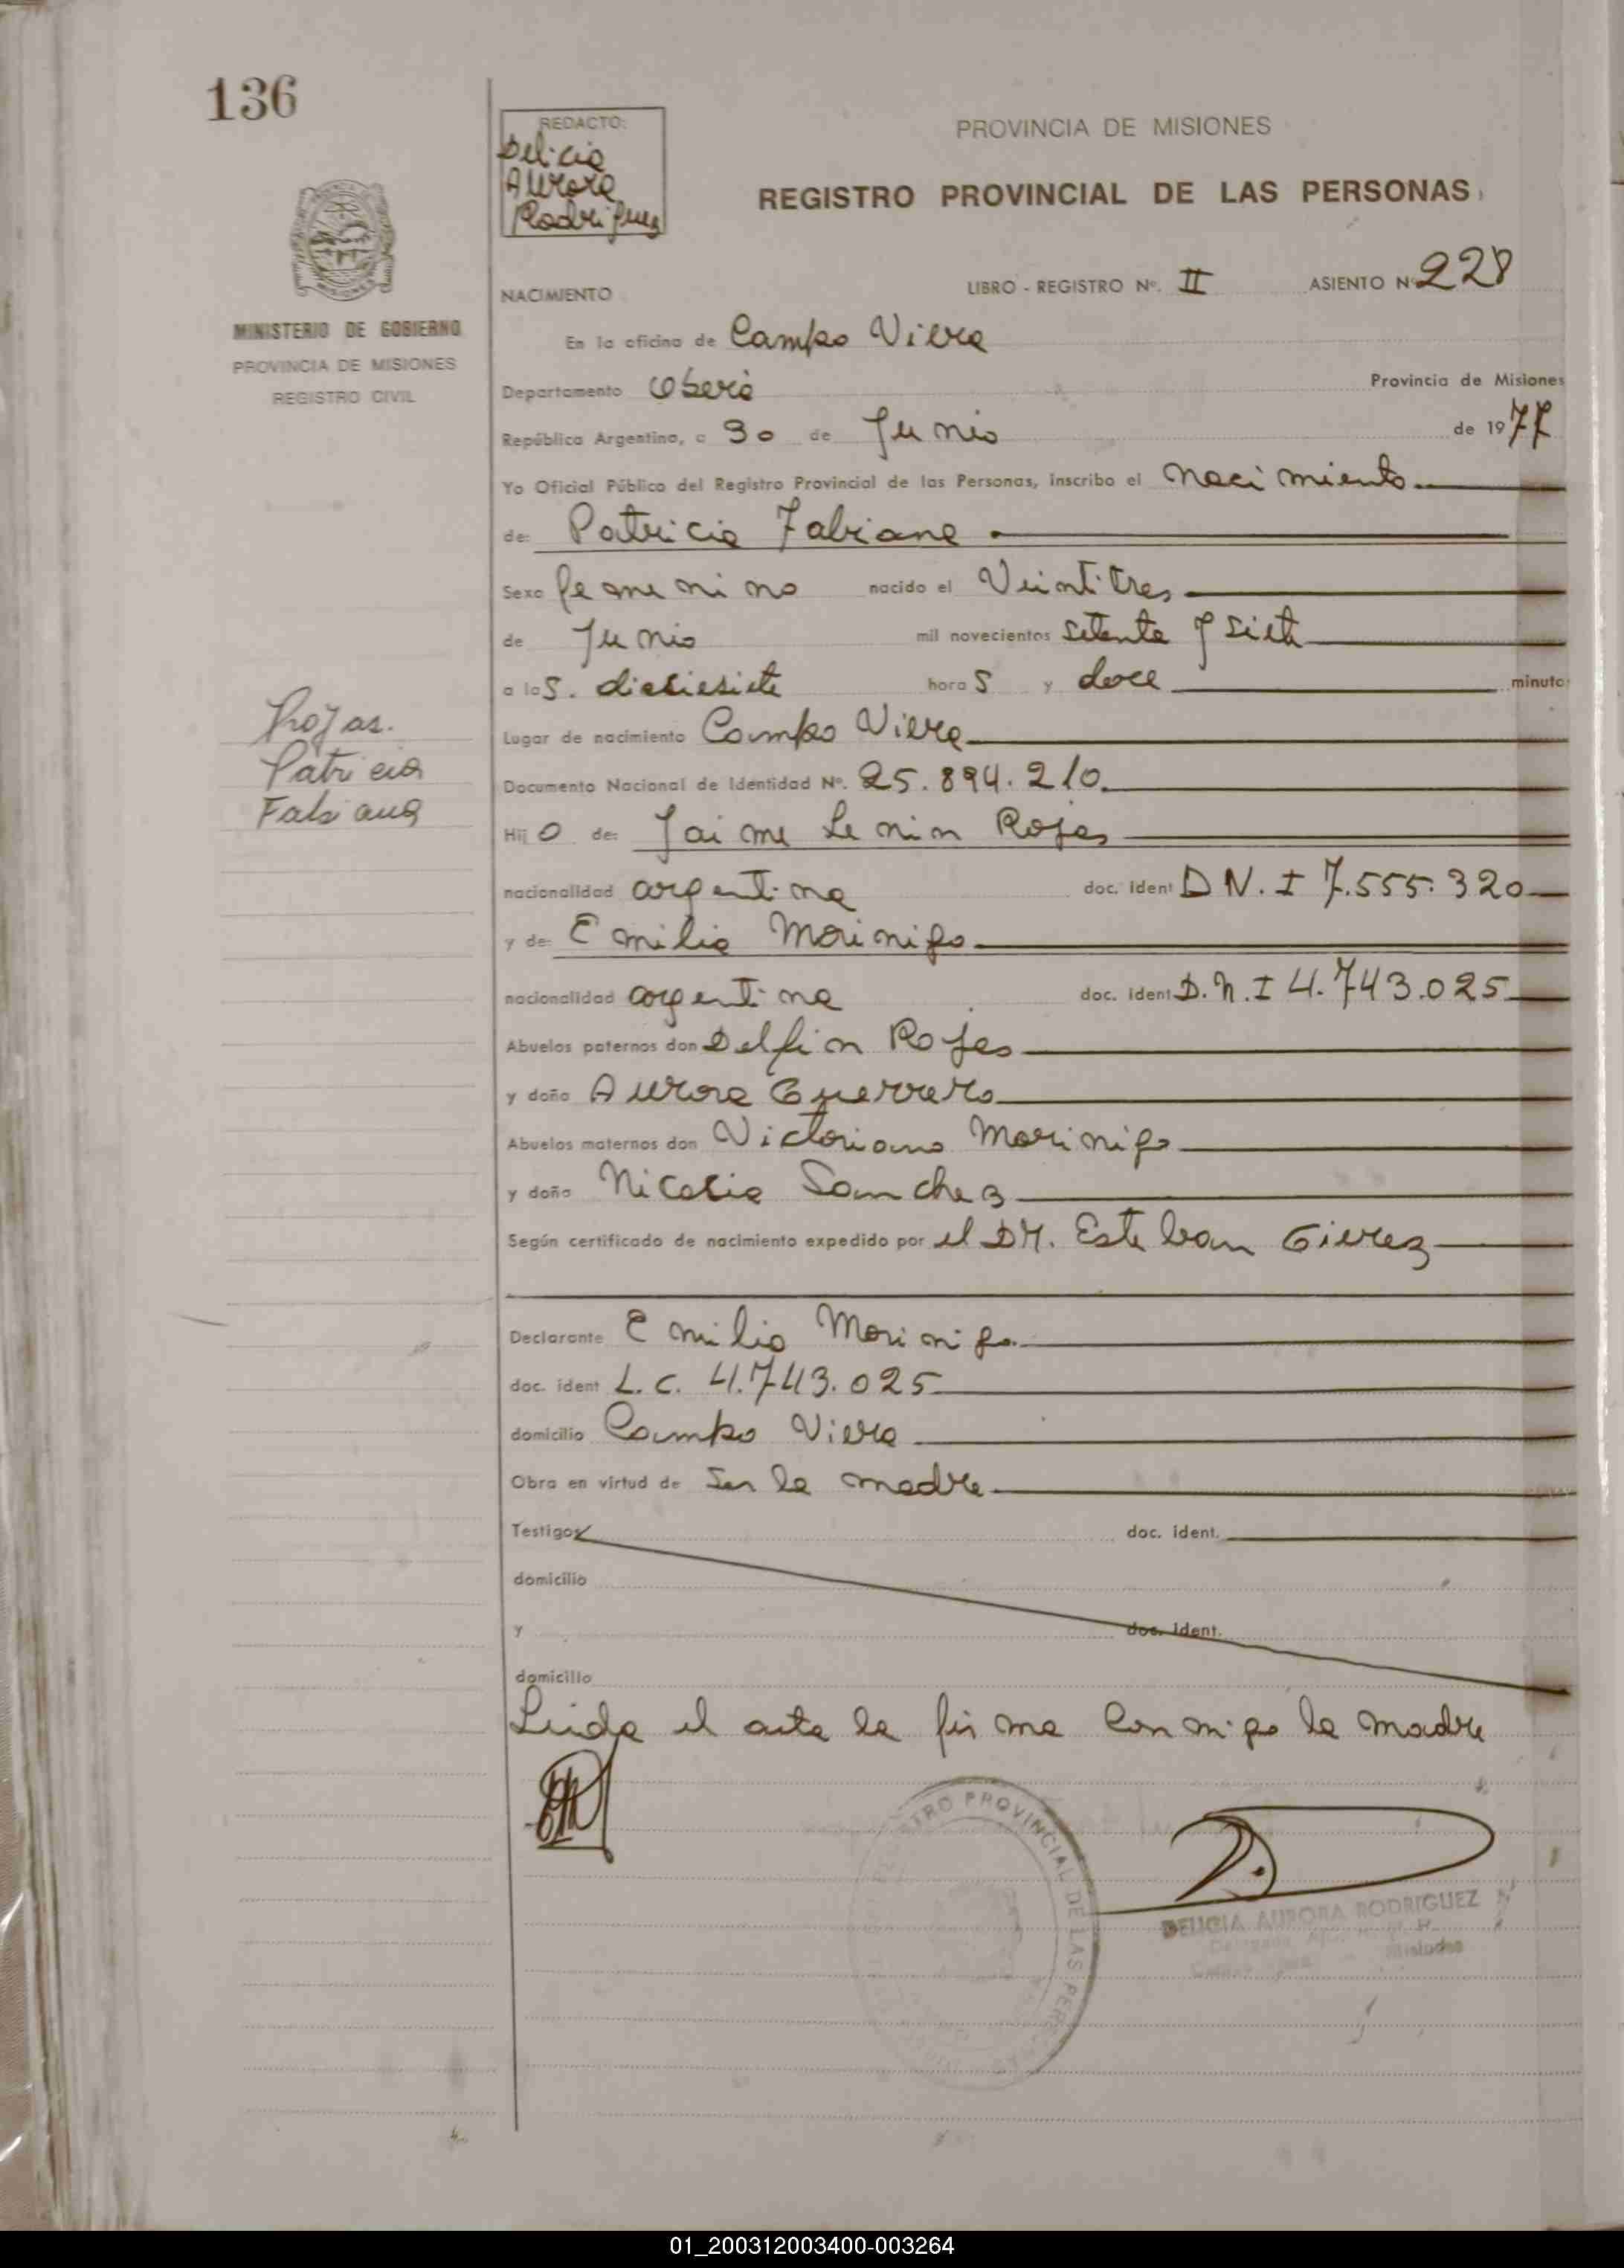 136
REDACTO:
Delicia
Aurora
Rodriguez
PROVINCIA DE MISIONES
REGISTRO PROVINCIAL DE LAS PERSONAS
MINISTERIO DE GOBIERNO
PROVINCIA DE MISIONES
REGISTRO CIVIL
NACIMIENTO LIBRO - REGISTRO Nº. II ASIENTO Nº 228
En la oficina de Campo Viera
Departamento Oberá Provincia de Misiones
República Argentina, a 30 de Junio de 1977
Yo Oficial Público del Registro Provincial de las Personas, inscribo el Nacimiento
de: Patricia Fabiana
Sexo femenino nacido el Veintitres
de Junio mil novecientos setenta y siete
a las. diesiesiete horas y doce minuto
Rojas.
Patricia
Fabiana
Lugar de nacimiento Campo Viera
Documento Nacional de Identidad Nº. 25.894.210.
Hijo de: Jaime Lenin Rojas
nacionalidad argentina doc. ident D N. I 7.555.320
y de: Emilia Morinigo
nacionalidad argentina doc. ident D. N. I 4.743.025
Abuelos paternos don Delfin Rojas
y doña Aurora Guerrero
Abuelos maternos don Victoriano Morinigo
y doña Nicasia Sanchez
Según certificado de nacimiento expedido por el Dr. Esteban
Declarante Emilia Morinigo
doc. ident L. C. 4.743.025
domicilio Campo Viera
Obra en virtud de Ser la madre
Testigos doc. ident.
domicilio
y doc. ident.
domicilio
Leida el acta la firma conmigo la madre
REGISTRO PROVINCIAL DE LAS PERSONAS
DELICIA AURORA RODRIGUEZ
Misiones
01_200312003400-003264